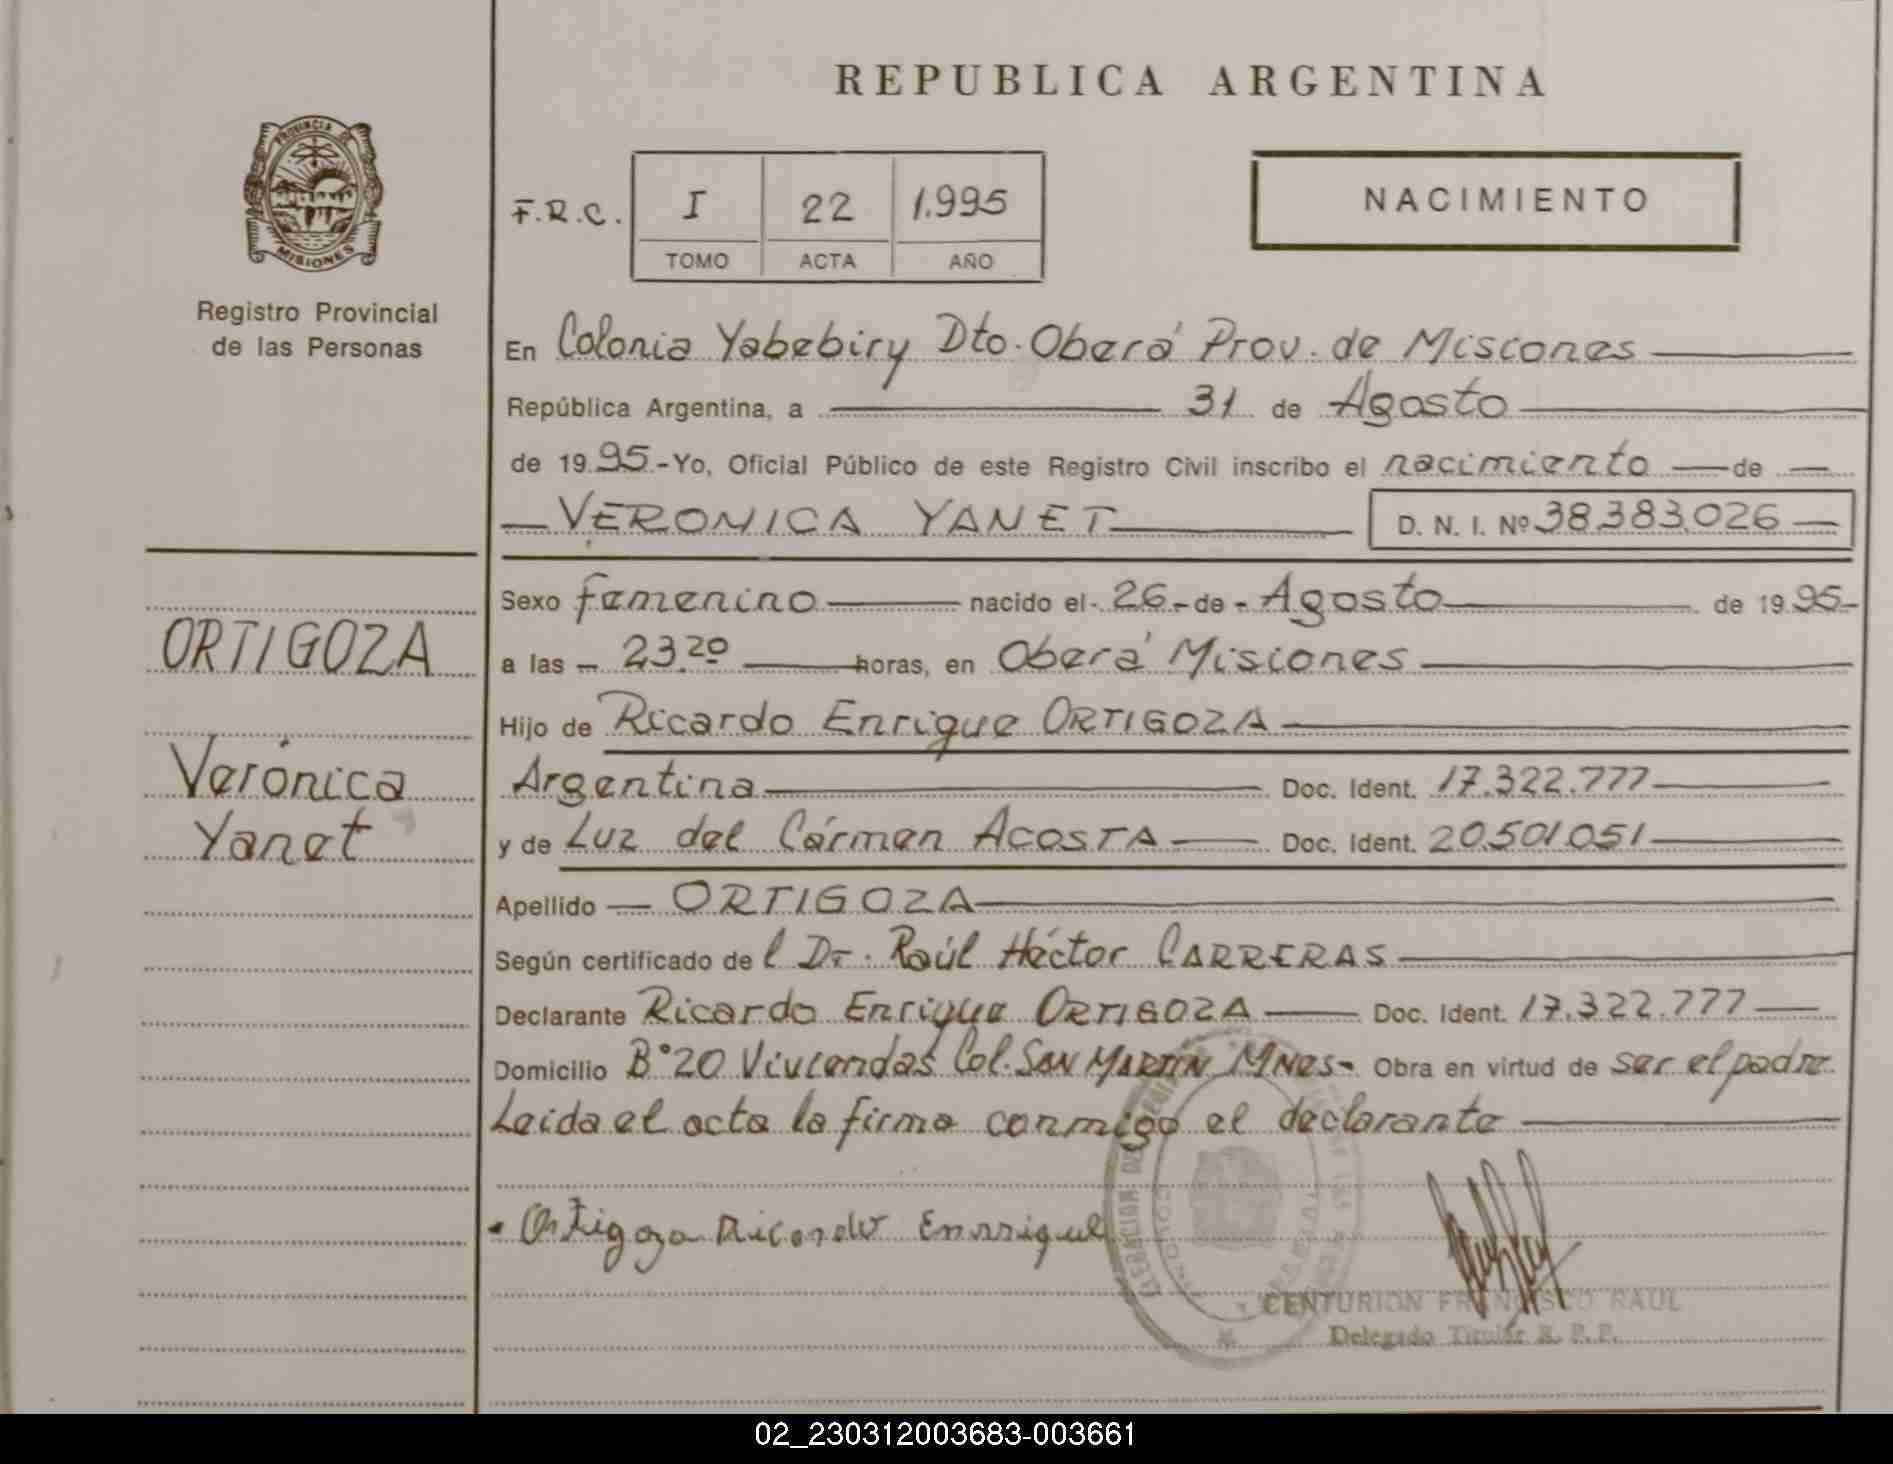 REPUBLICA ARGENTINA
PROVINCIA DE
MISIONES
Registro Provincial
de las Personas
F.R.C. I 22 1.995
TOMO ACTA AÑO
NACIMIENTO
En Colonia Yabebiry Dto. Oberá Prov. de Misiones
República Argentina, a 31 de Agosto
de 1995.- Yo, Oficial Público de este Registro Civil inscribo el nacimiento de
VERONICA YANET D. N. I. Nº 38.383.026
Sexo femenino nacido el - 26 - de - Agosto de 1995-
a las - 23.20 horas, en Oberá Misiones
ORTIGOZA
Hijo de Ricardo Enrique ORTIGOZA
Verónica
Argentina Doc. Ident. 17.322.777
Yanet
y de Luz del Cármen ACOSTA Doc. Ident. 20.501.051
Apellido ORTIGOZA
Según certificado del Dr. Raúl Héctor CARRERAS
Declarante Ricardo Enrique ORTIGOZA Doc. Ident. 17.322.777
Domicilio B° 20 Viviendas Col. SAN MARTIN MNes- Obra en virtud de ser el padre
Leida el acta la firma conmigo el declarante
Ortigoza Ricardo Enrrique
CENTURION FRANCISCO RAUL
Delegado Titular R. P. P.
02_230312003683-003661